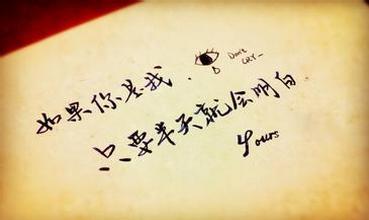 如果你是我.
Don't
CRY~
只要半天就会明白
Yours